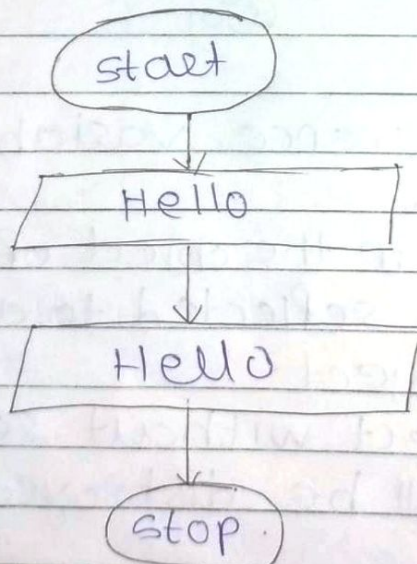 start
Hello
Hello
stop.